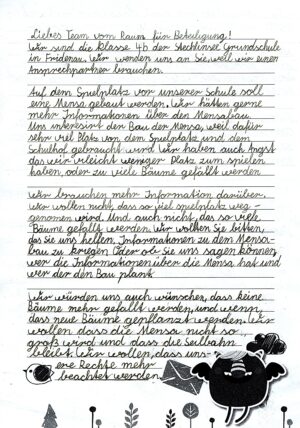 Liebes Team vom Raum für Beteiligung!
Wir sind die Klasse 4b der Stechlinsee Grundschule
in Fridenau. Wir wenden uns an Sie, weil wir einen
Ansprechpartner brauchen.
Auf dem Spielplatz vor unserer Schule soll
eine Mensa gebaut werden. Wir hätten gerne
mehr Informationen über den Mensabau.
Uns interesirt den Bau der Mensa, weil dafür
sehr viel Platz von dem Spielplatz und dem
Schulhof gebraucht wird. Wir haben auch Angst
das wir vieleicht weniger Platz zum spielen
haben, oder zu viele Bäume gefällt werden
Wir brauchen mehr Information darüber.
Wir wollen nicht, das so viel spielplatz weg-
genomen wird. Und auch nicht, das so viele
Bäume gefällt werden. Wir wollten Sie bitten,
das Sie uns helfen, Informationen zu dem Mensa-
bau zu kriegen Oder ob Sie uns sagen können,
wer die Informationen über die Mensa hat und
wer der den Bau plant
Wir würden uns auch wünschen, dass keine
Bäume mehr gefällt werden, und wenn,
dass neue Bäume gepflanzt werden. Wir
wollen dass die Mensa nicht so
groß wird und dass die Seilbahn
bleibt. Wir wollen, dass uns-
ere Rechte mehr
beachtet werden.